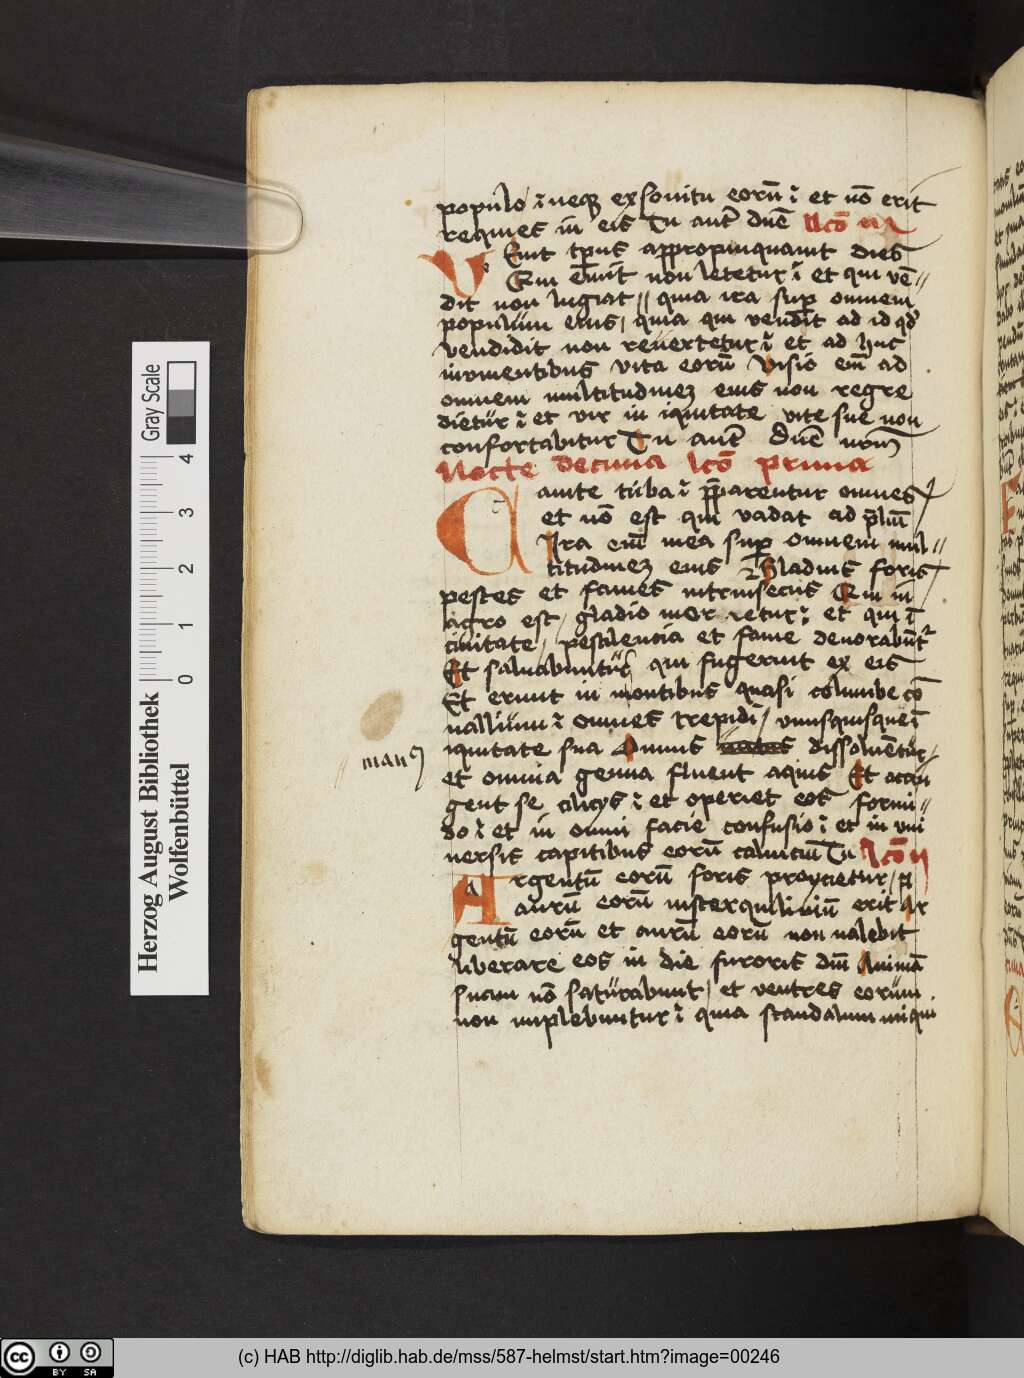 populo / ⁊ neqꝫ ex sonitu eorū ⁊ et nō erit
requies in eis Tu aut̄ dn̄e lc̄o
Venit tp̄us appropinquauit dies
Qui emit non letetur ⁊ et qui vē〃
dit non lugeat〃 quia ira sup omnem
populum eius / quia qui vendit ad id qd̕
vendidit non reuertetur ⁊ et ad huc
in viuentibus vita eorū Visio em̄ ad
omnem multitudinez eius non regre
dietur ⁊ et vir in iqutate vite sue non
confortabitur Tu aut̄ dn̄e
Nocte decima lc̄o prima
Canite tuba ⁊ p̄parentur omnes /
et nō est qui vadat ad p̄liū
Ira em̄ mea sup omnem mul〃
titudinez eius Gladius foris
pestes et fames intrinsecus Qui in
agro est / gladio morietur ⁊ et qui ī
ciuitate / pestilencia et fame deuorabūt᷑
Et saluabuntur qui fugerint ex eis
Et erunt in montibus quasi columbe cō
uallium ⁊ omnes trepidi / vnusquisque ī
iqutate sua Omnes dissoluētur /
man⁹
et omnia genua fluent aquis Et accin
gent se cilicijs ⁊ et operiet eos formi〃
do ⁊ et in omni facie confusio ⁊ et in vni
uersis capitibus eorū caluiciū Tu lc̄o ij
Argentū eorū foris proycietur /
aurū eorū in sterquiliniū erit Ar
gentū eorū et aurū eorū non valebit
liberare eos in die furoris dn̄i Animā
suam nō saturabunt / et ventres eorum
non implebuntur ⁊ quia scandalum iniqui
Gray Scale
4
3
2
1
0
Herzog August Bibliothek
Wolfenbüttel
BY SA
(c) HAB http://diglib.hab.de/mss/587-helmst/start.htm?image=00246